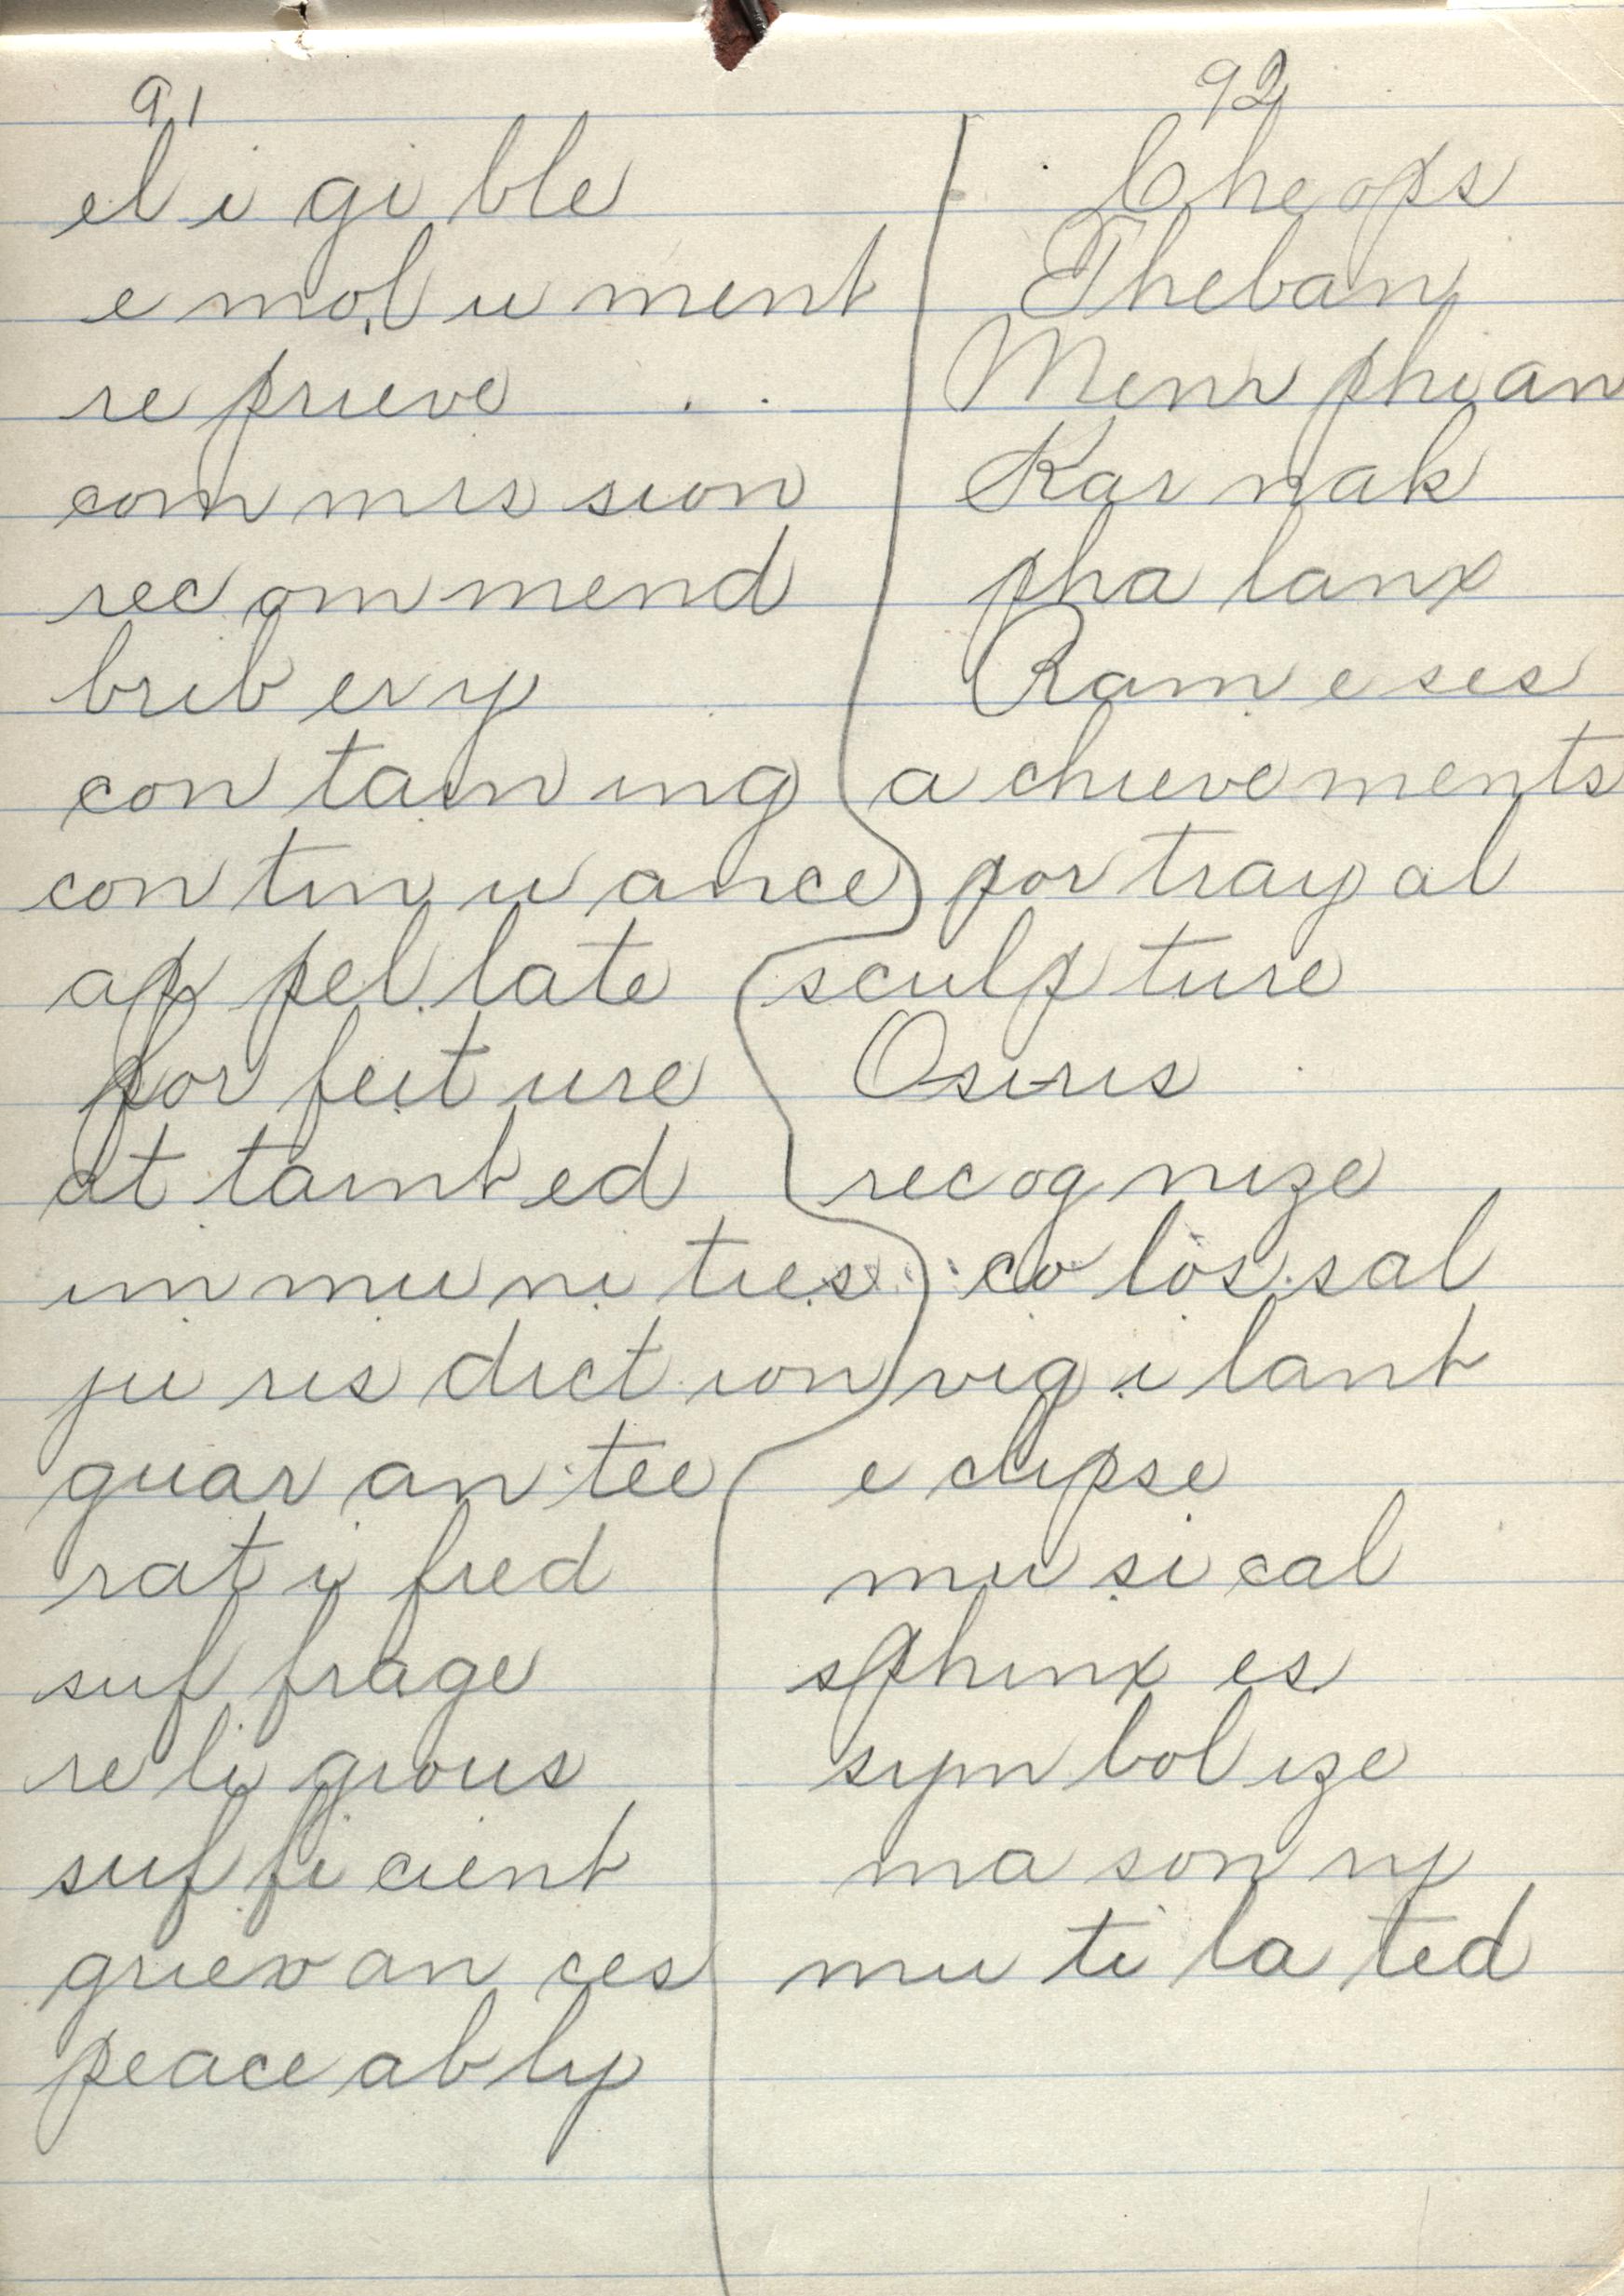 91
el i gi ble
e mol u ment
re prieve
com mis sion
rec om mend
brib er y
con tain ing
con tin u ance
ap pel late
for feit ure
at taint ed
im mu ni ties
ju ris dict ion
guar an tee
rat i fied
suf frage
re li gious
suf fi cient
griev an ces
peace ab ly
92
Che ops
Theban
Mem phi an
Kar nak
pha lanx
Ram e ses
a chieve ments
por tray al
sculp ture
O-si-ris
rec og nize
co los sal
vig i lant
e clipse
mu si cal
sphinx es
sym bol ize
ma son ry
mu ti la ted